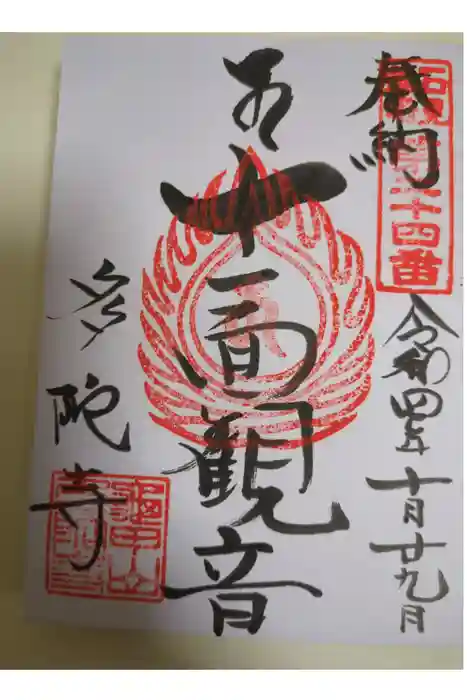 奉納
十四番
令和四年
十月廿九日
十一面観音
多陀寺